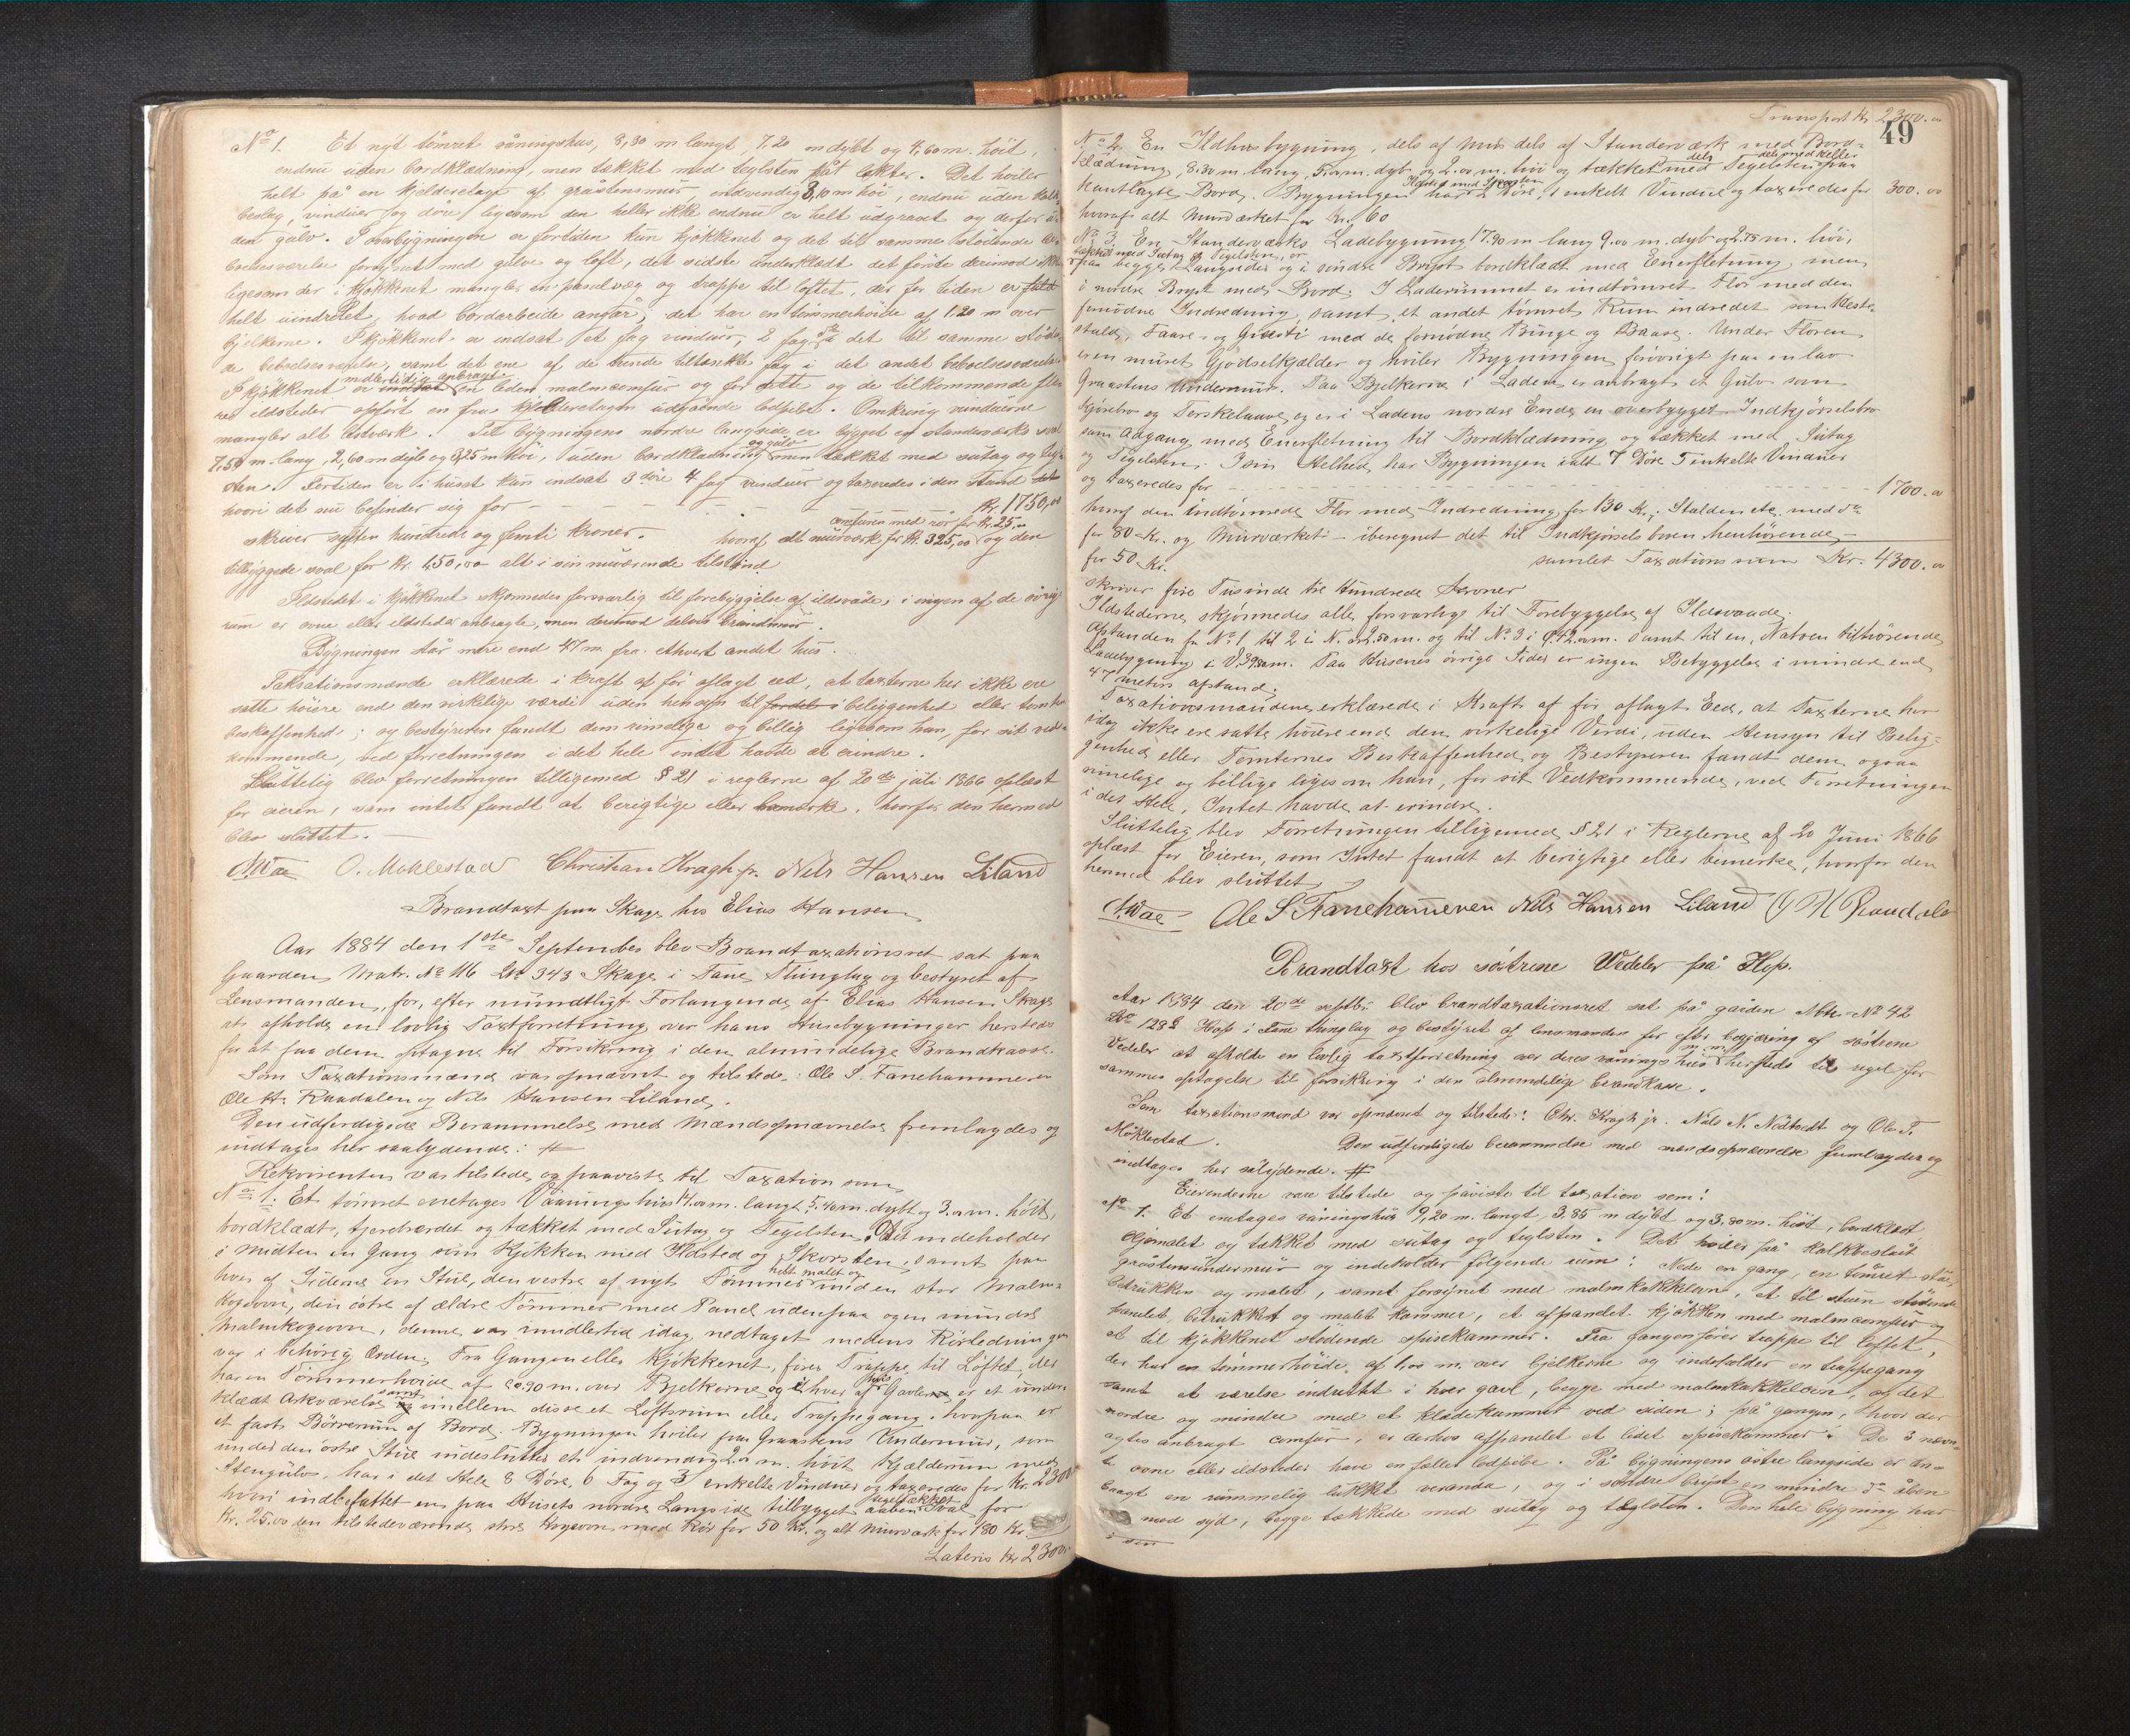 No 1. Et nyt tømret våningshus, 8,30 m langt, 7,20 m dybt og 4,60 m. höit,
endnu uden bordklædning, men tækket med teglsten på lekter. Det hviler
helt på en kjelderetage af gråstensmur, indvendig 3,10 m höi, endnu uden kalk
beslag, vinduer og döre ligesom den heller ikke endnu er helt udgravet og derfor u-
den gulv. I overbygningen er fortiden kun kjökkenet og det til samme stödende be-
boelsesværelse forsynet med gulve og loft, det sidste underklædt det förste derimod ikke
ligesom der i kjökkenet mangler en panelvæg og trappe til loftet, der for tiden er
helt uindredet, hvad bordarbeide angår; det har en tømmerhöide af 1,20 m over
bjelkerne. I kjökkenet er indsat et fag vinduer, 2 fag do i det til samme stöden-
de beboelsesværelse, samt det ene af de tvende tiltænkte fag i det andet beboelsesværelse
I kjökkenet er midlertidig anbragt en liden malmcomfur og for dette og de tilkommende fle-
re ildsteder opfört en fra kjelderetagen udgående lodpibe. Omkring vinduerne
mangler alt listværk. Til bygningens nordre langside er bygget en standværks sval
7,50 m. lang, 2,60 m dyb og 3,25 m höi, uden bordklædning og gulv men tækket med sutag og tegl-
sten. Fortiden er i huset kun indsat 3 döre 4 fag vinduer og taxeredes i den stand
hvori det nu befinder sig for - - - - Kr. 1750,00
skriver sytten hundrede og femti kroner. hvoraf alt murværk for Kr. 325,00 comfuren med rör for Kr. 25,00 og den
tilbyggede sval for Kr. 150,00 alt i sin nuværende tilstand.
Ildstedet i kjökkenet skjønnedes forsvarlig til forebyggelse af ildsvåde; i ingen af de övrige
rum er ovne eller ildsteder anbragte, men derimod delvis brandmur.
Bygningen står mere end 47 m fra ethvert andet hus.
Taksationsmænde erklærede i kraft af för aflagt eed, at taxterne her ikke ere
satte höiere end den virkelige værdi uden hensyn til beliggenhed eller tomtens
beskaffenhed; og bestyreren fandt dem rimelige og billig ligesom han, for sit ved-
kommende, ved forretningen i det hele intet havde at erindre.
Sluttelig blev forretningen tilligemed § 21 i reglerne af 20de juli 1866 oplæst
for eieren, som intet fandt at berigtige eller bemærke, hvorfor den hermed
blev sluttet.
O. Moklestad Christian Kragh jr. Nils Hansen Liland
Brandtaxt paa Skage hos Elias Hansen
Aar 1884 den 1ste September blev Brandtaxationsret sat paa
Gaarden Matr. No 116 Lno 343 Skage i Fane Thinglag og bestyret af
Lensmanden, for, efter mundtligt Forlangende af Elias Hansen Skage
at afholde en lovlig Taxtforretning over hans Husebygninger hersteds
for at faa dem optagne til Forsikring i den almindelige Brandkasse.
Som Taxationsmænd var opnævnt og tilstede: Ole S. Fanehammeren
Ole H. Raadalen og Nils Hansen Liland.
Den udferdigede Berammelse med Mændsopnævnelse fremlagdes og
indtages her saalydende: #
Rekvirenten var tilstede og paaviste til Taxation som
No 1. Et tømret enetages Vaaningshus 14.00 m. langt, 5.40 m. dybt og 3. m. höit,
bordklædt, tjærebredet og tækket med Sutag og Tegelsten. Det indeholder
i Midten en Gang som Kjökken med Ildsted og Skorsten, samt paa
hver af Siderne en Stue, den vestre af nyt Tømmer helt malet og med en stor Malm-
kogeovn, den östre af ældre Tömmer med Panel udenpaa og en mindre
Malmkogeovn, denne var imidlertid idag nedtaget medens Rörledningen
var i behörig Orden. Fra Gangen eller Kjökkenet, förer Trappe til Loftet, der
har en Tömmerhöide af 0.90 m. over Bjelkerne og i hver af Gavlerne er et under-
klædt Arkværelse samt imellem disse et Loftsrum eller Trappegang, hvorpaa er
et fast Börrerum af Bord. Bygningen hviler paa Graastens Undermur, som
under den östre Stue indeslutter et indvendig 2. m. höit Kjælderrum med
Stengulv, har i det Hele 8 Döre, 6 Fag og 3 enkelte Vinduer og taxeredes for Kr. 2300
hvori indbefattet en paa Husets nordre Langside tilbygget tegeltækket aaben Sval for
Kr. 25.00 den tilstedeværende store Kogeovn med Rör for 50 Kr. og alt Murværk for 180 Kr.
Lateris Kr. 2300.
Transport Kr. 2300.00
49
No 2. En Ildhusbygning, dels af Mur dels af Standerværk med Bord-
klædning, 8.30 m. lang, 5. m. dyb og 2.00 m. höi og tækket dels med Tegelsten paa
kantlagte Bord. Bygningen har 2 Döre, 1 enkelt Vindue og taxeredes for 300.00
hvoraf alt Murværket for Kr. 60
No 3. En Standerværks Ladebygning 17.90 m lang 9.00 m. dyb og 2.75 m. höi,
tækket med Sutag og Tegelsten, er
paa begge Langsider og i söndre Bryst bordklædt med Enerfletning, men
i nordre Bryst med Bord. I Laderummet er indtömret Flor med den
fornödne Indredning, samt et andet tömret Rum indredet som Heste-
stald, Faare- og Grisesti med de fornödne Binge og Baase. Under Floren
er en muret Gjödselkjælder og hviler Bygningen forövrigt paa en lav
Graastens Undermur. Paa Bjelkerne i Laden er anbragt et Gulv som
Kjörebro og Terskelaave, og er i Ladens nordre Ende en overbygget Indkjörselsbro
som Adgang, med Enerfletning til Bordklædning og tækket med Sutag
og Tegelsten. I sin Helhed har Bygningen ialt 7 Döre 7 enkelte Vinduer
og taxeredes for - - - - 1700.00
hvoraf den indtömrede Flor med Indredning for 130 Kr. Stalden etc. med do
for 80 Kr. og Murværket - iberegnet det til Indkjörselsbroen henhörende -
for 50 Kr. samlet Taxationssum Kr. 4300.00
skriver fire Tusinde tre Hundrede Kroner
Ildstederne skjønnedes alle forsvarlige til Forebyggelse af Ildsvaade.
Afstanden fra No 1 til 2 i N. er 2.50 m. og til No 3 i Ö. 42. m. samt til en, Natven tilhörende
Ladebygning i V. 39. m. Paa Husenes övrige Sider er ingen Bebyggelse i mindre end
47 meters afstand.
Taxationsmændene erklærede i Kraft af för aflagt Eed, at Taxterne her
idag ikke ere satte höiere end den virkelige Verdi, uden Hensyn til Belig-
genhed eller Tomternes Beskaffenhed og Bestyreren fandt dem ogsaa
rimelige og billige ligesom han, for sit Vedkommende, ved Forretningen
i det Hele, Intet havde at erindre.
Sluttelig blev Forretningen tilligemed § 21 i Reglerne af 20 Juni 1866
oplæst for Eieren, som Intet fandt at berigtige eller bemerke, hvorfor den
hermed blev sluttet
Ole S Fanehammeren Nils Hansen Liland O H Raadalen
Brandtaxt hos söstrene Wedeler på Hop.
Aar 1884 den 20de septbr. blev brandtaxationsret sat på gården Mtr. No 42
Lno 128 Hop i Fane thinglag og bestyret af lensmanden for efter begjæring af söstrene
Vedeler at afholde en lovlig taxtforretning over deres vånings hus m.m. hersteds til
sammes optagelse til forsikring i den almindelige brandkasse.
Som taxationsmænd var opnævnt og tilstede: Chr. Kragh jr. Nils N. og Ole T.
Möklestad. Den udferdigede berammelse med mandsopnævnelse fremlagdes og
indtages her sålydende. #
Eierinderne vare tilstede og påviste til taxation som:
No 1. Et enetages våningshus 9,20 m. langt, 3,85 m dybt og 3,80 m. höit, bordklædt,
oljemalet og tækket med sutag og teglsten. Det hviler på kalkbeslået
gråstensundermur og indeholder følgende rum: Nede en gang, en tömret stue,
betrukken og malet, samt forsynet med malmkakkelovn, et til stuen stödende
panelet, betrukket og malet kammer, et afpanelet kjökken med malmcomfur og
et til kjökkenet stödende spisekammer. Fra gangen förer trappe til loftet,
der har en tømmerhöide af m. over bjelkerne og indeholder en trappegang
samt et værelse indredet i hver gavl, begge med malmkakkelovn, og det
nordre og mindre med et klædekammer ved siden; på gangen, hvor der
agtes anbragt comfur, er derhos afpanelet et lidet spisekammer. De 3 nævn-
te ovne eller ildsteder have en fælles lodpibe. På bygningens östre langside er an-
bragt en rummelig lukket veranda, og i söndre bryst en mindre do åben
mod syd, begge tækkede med sutag og teglsten. Den hele bygning har
i sin